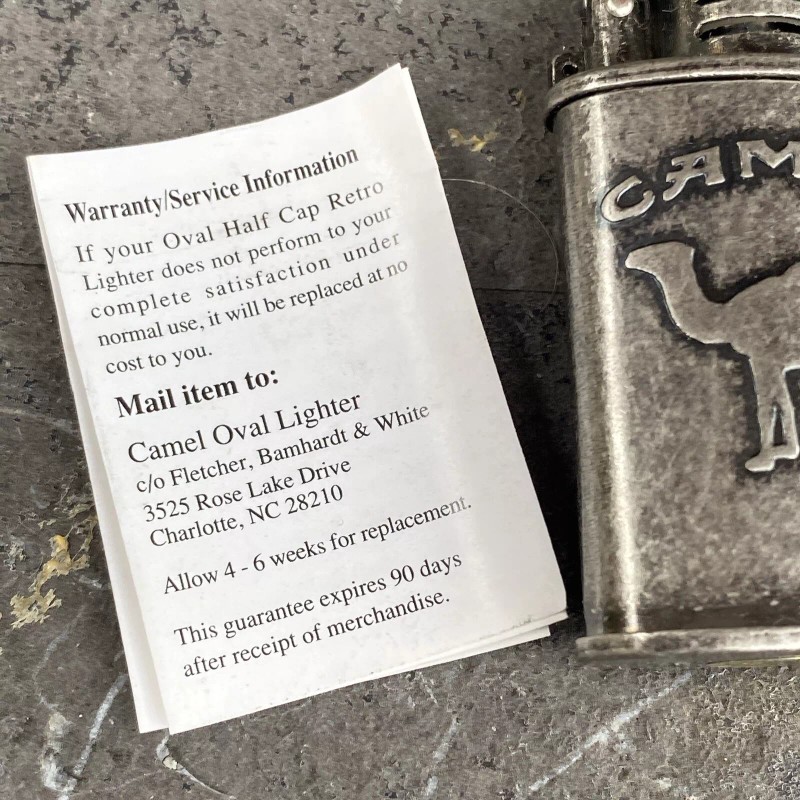 Warranty/Service Information
If your Oval Half Cap Retro
Lighter does not perform to your
complete satisfaction under
normal use, it will be replaced at no
cost to you.
Mail item to:
Camel Oval Lighter
c/o Fletcher, Bamhardt & White
3525 Rose Lake Drive
Charlotte, NC 28210
Allow 4 - 6 weeks for replacement.
This guarantee expires 90 days
after receipt of merchandise.
CAM